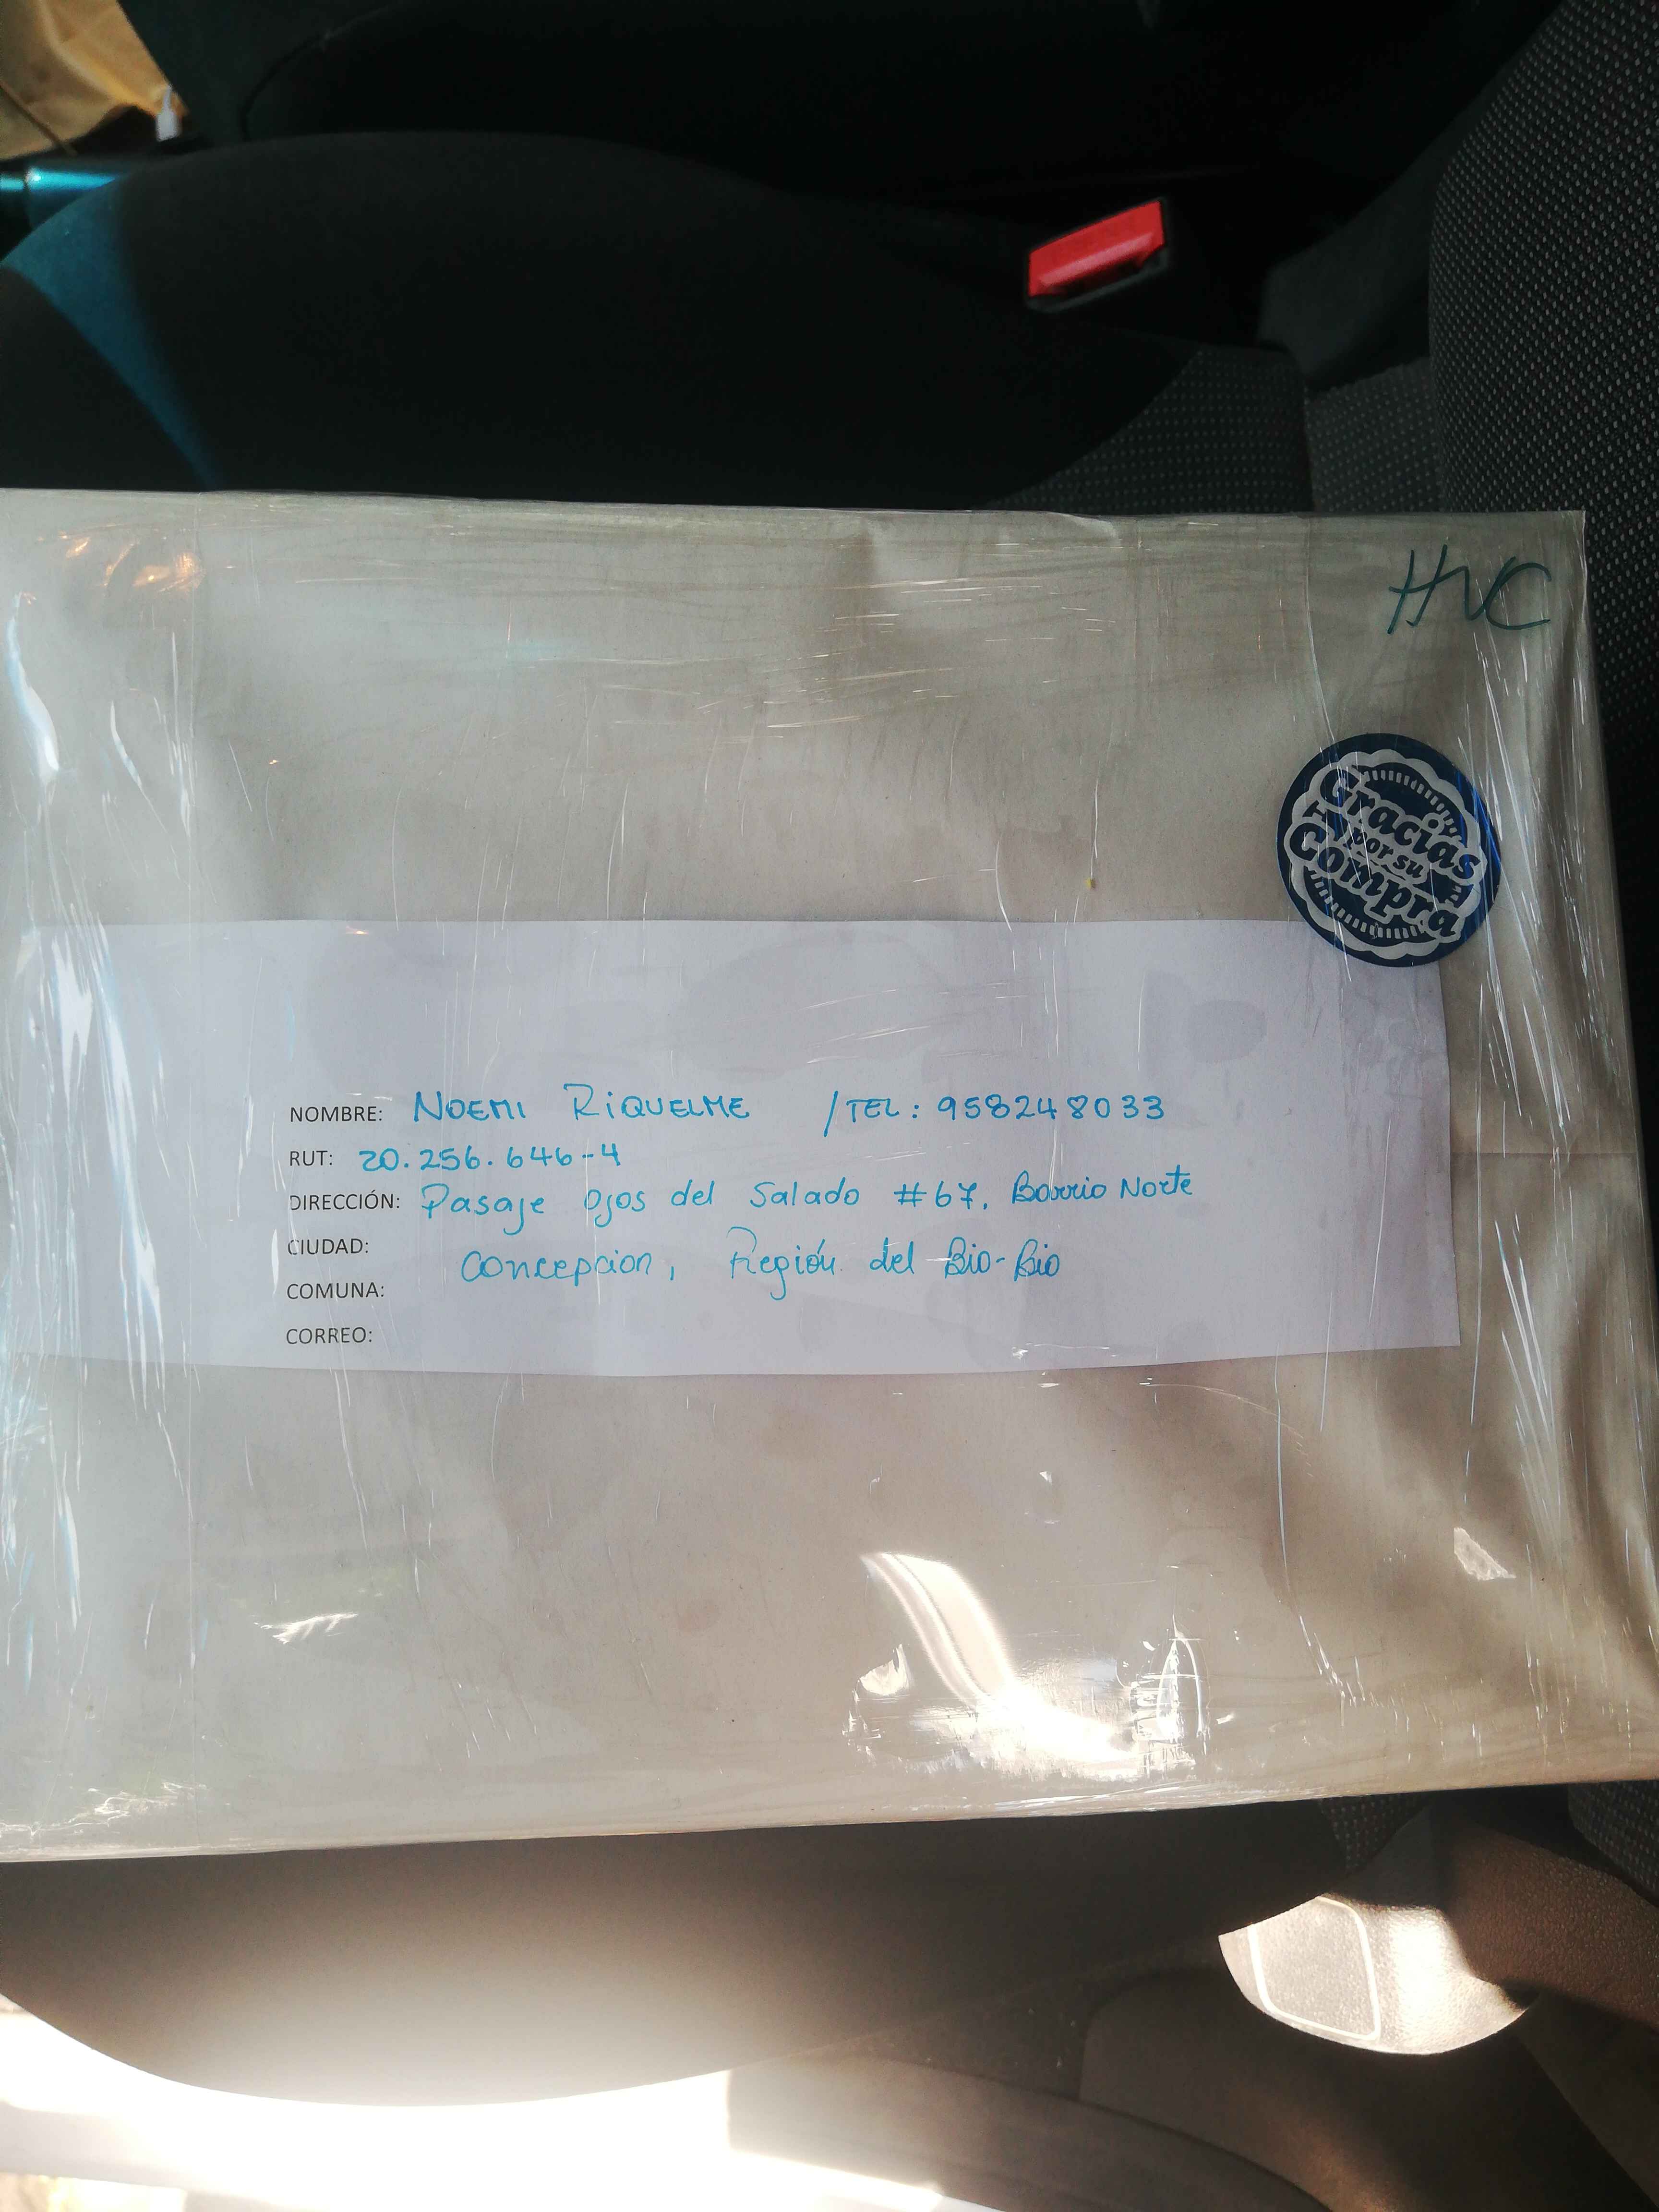 HNC
Gracias
por su
Compra
NOMBRE: NOEMI RIQUELME /TEL: 958248033
RUT: 20.256.646-4
DIRECCIÓN: Pasaje Ojos del Salado #67. Barrio Norte
CIUDAD:
Concepcion, Región del Bio-Bio
COMUNA:
CORREO: